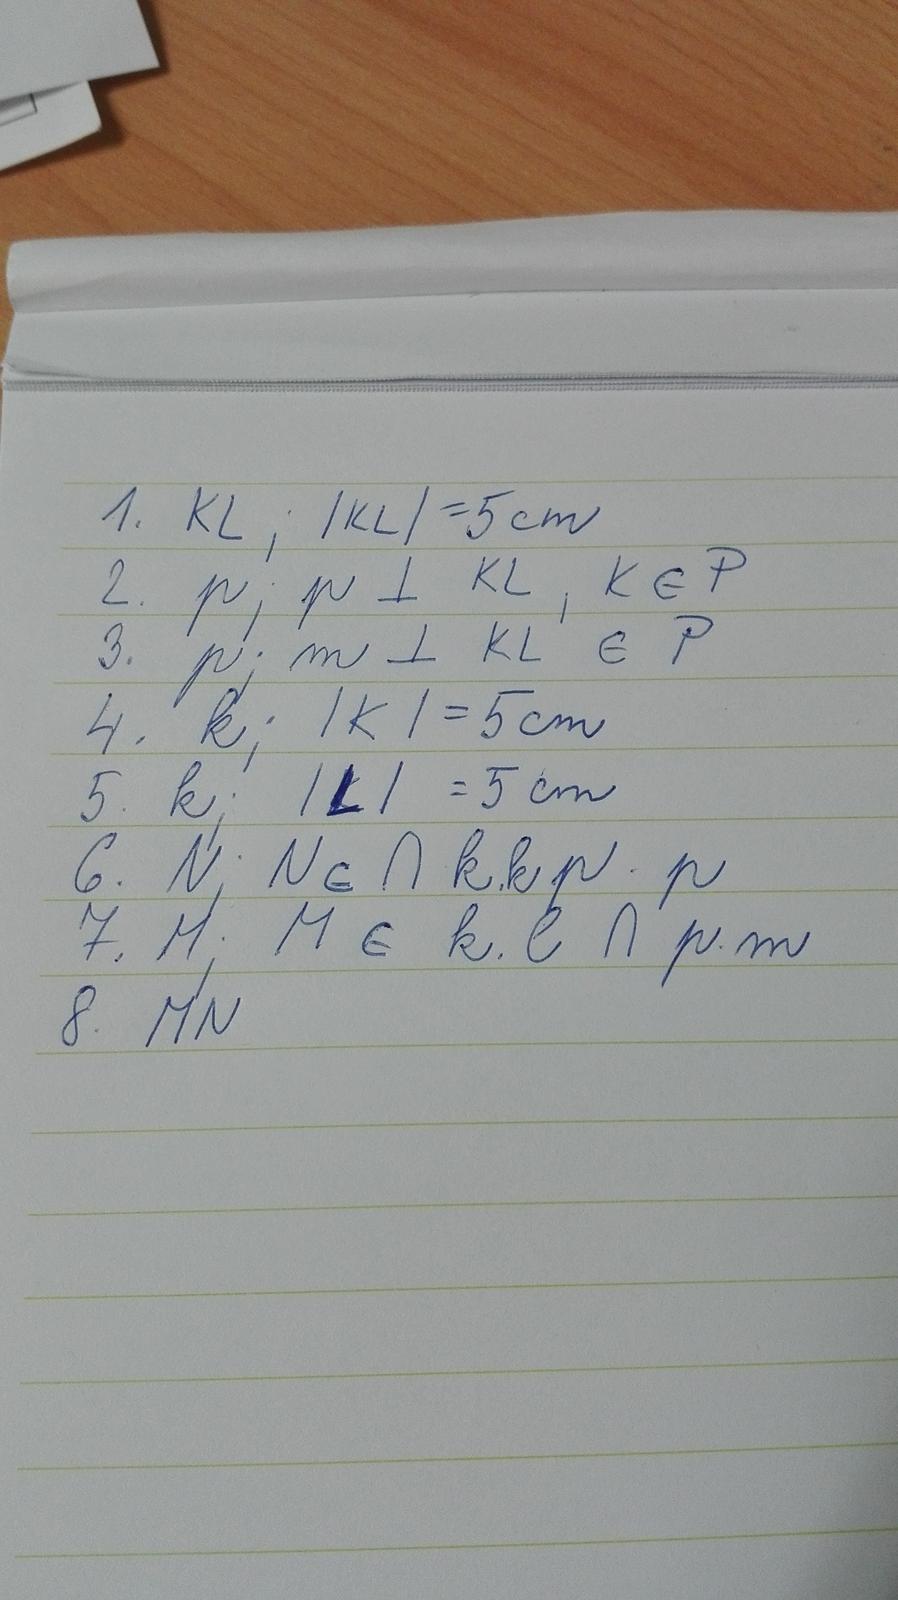 1. KL; |KL| = 5 cm
2. p; p ⊥ KL, K ∈ P
3. p; m ⊥ KL ∈ P
4. k; |K| = 5 cm
5. k; |L| = 5 cm
6. N; N ∈ ∩ k.k p. p
7. M; M ∈ k. l ∩ p. m
8. MN